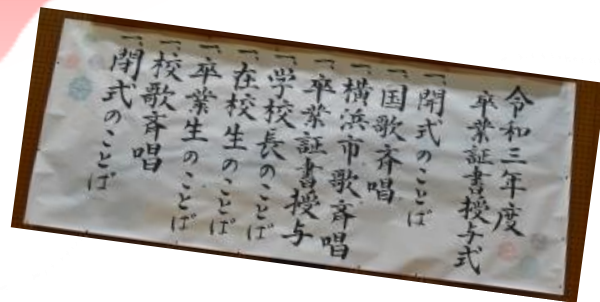 令和三年度
卒業証書授与式
一、開式のことば
一、国歌斉唱
一、横浜市歌斉唱
一、卒業証書授与
一、学校長のことば
一、在校生のことば
一、卒業生のことば
一、校歌斉唱
一、閉式のことば